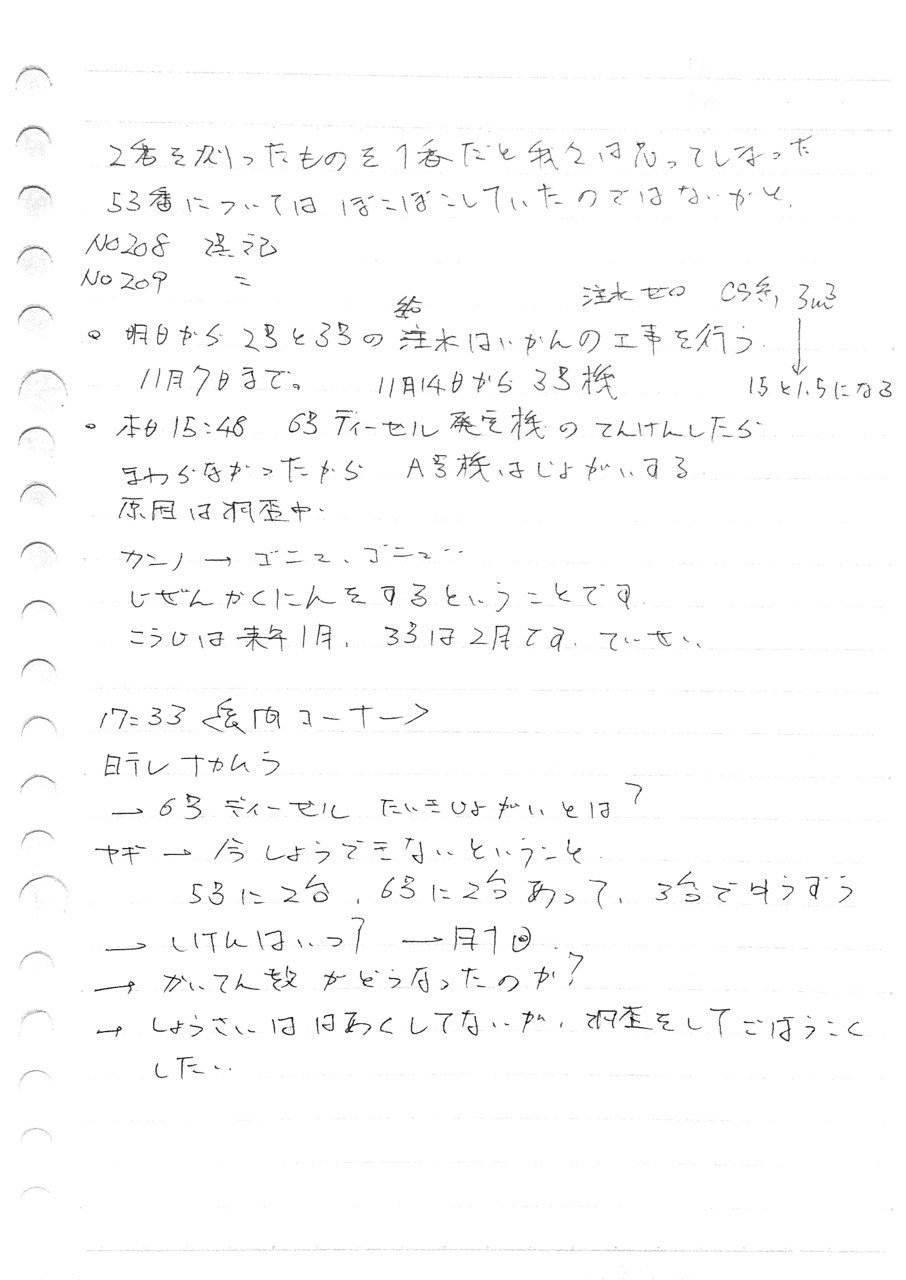 2番を測ったものを1番だと我々は思ってしまった
53番については ぼこぼこしていたのではないかと、
No208 誤記
No209 〃
注水ゼロ CS系, 3m³
給
・明日から 2号と3号の 注水はいかんの工事を行う
11月7日まで。 11月14日から 3号機 15と1.5になる
・本日15:48 6号ディーゼル発電機のてんけんしたら
まわらなかったから A号機はじょがいする
原因は調査中・
カンノ → ゴニョ、ゴニョ‥
じぜんかくにんをするということです
こうじは来年1月、3号は2月です、ていせい、
17:33 <质内コーナー>
日テレ ナカムラ
→ 6号 ディーゼル たいきじょがいとは?
ヤギ → 今しようできないということ
5号に2台、6号に2台あって、3台でゆうずう
→ しけんはいつ? → 月1回.
→ かいてん数がどうなったのか?
→ しょうさいははあくしてないが、調査をしてごほうこく
したい‥